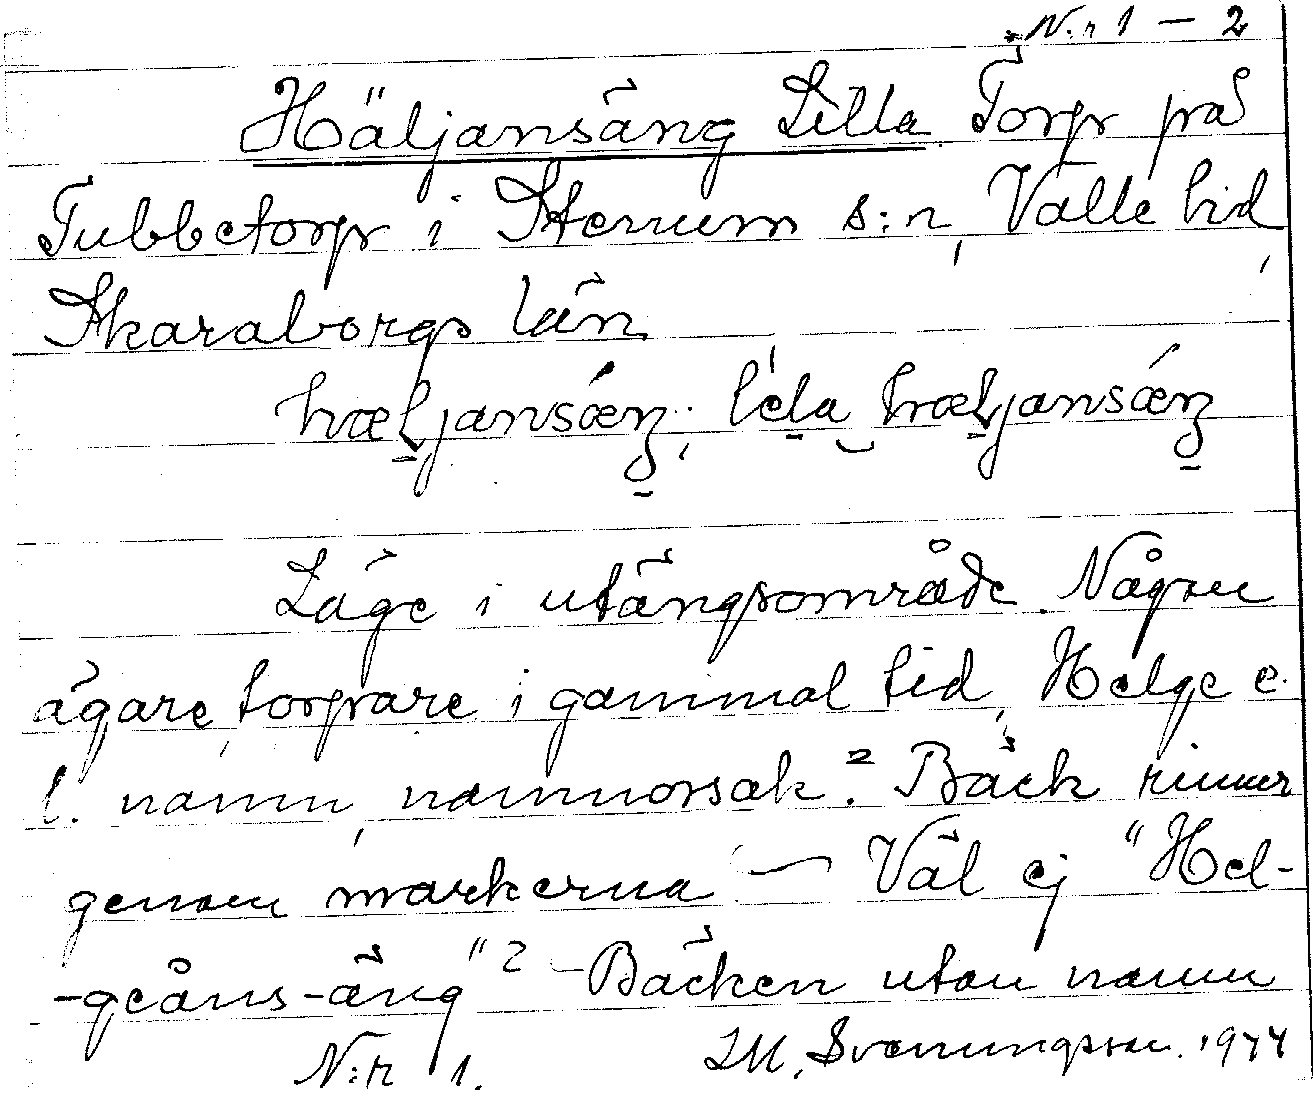 N:r 1 — 2
Häljansäng Lilla. Torp på
Tubbetorp i Stenum s:n, Valle hd,
Skaraborgs län.
hæljansǽŋ; léla hæljansǽŋ
Läge i utängsområde. Någon
ägare, torpare i gammal tid, Helge e.
l. namn, namnorsak? Bäck rinner
genom markerna — Väl ej "Hel-
-geåns-äng"? – Bäcken utan namn
N:r 1. I.M. Svenungsson. 1944